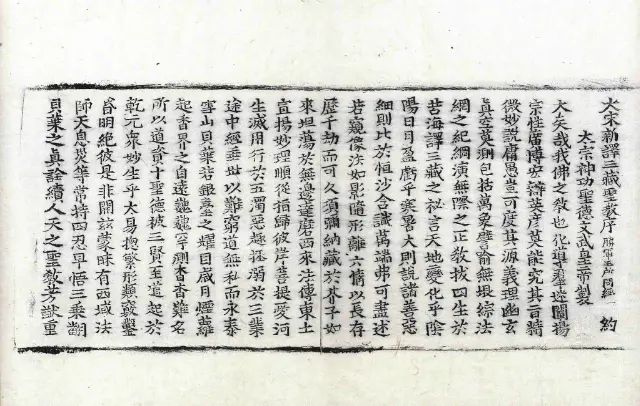 大宋新譯三藏聖教序
約
太宗神功聖德文武皇帝製
大矣哉我佛之教也化導群迷闡揚
宗性廣博宏辯英彥莫能究其旨精
微妙說庸愚豈可度其源義理幽玄
真空莫測包括萬象譬喻無垠綜法
網之紀綱演無際之正教拔四生於
苦海譯三藏之祕言天地變化乎陰
陽日月盈虧乎寒暑大則說諸善惡
細則比於恒沙含識萬端弗可盡述
若窺像法如影隨形離六情以長存
歷千劫而可久須彌納藏於芥子如
來坦蕩於無邊達磨西來法傳東土
宣揚妙理順從指歸彼岸菩提愛河
生滅用行於五濁惡趣拯溺於三業
途中經垂世以難窮道無私而永泰
雪山貝葉若銀臺之耀目歲月煙蘿
起香界之自遠巍巍罕測杳杳難名
所以道資十聖德被三賢至道起於
乾元眾妙生乎太易揔繁形類竅鑿
昏明絕彼是非開茲蒙昧有西域法
師天息災等常持四忍早悟三乘翻
貝葉之真詮續人天之聖教芳猷重